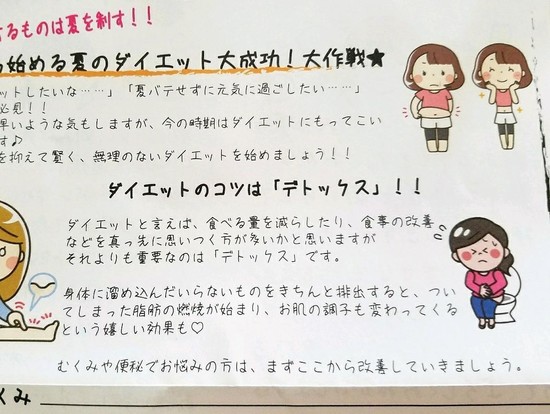 するものは夏を制す!!
ら始める夏のダイエット大成功!大作戦★
ットしたいな……」「夏バテせずに元気に過ごしたい……」
必見!!
早いような気もしますが、今の時期はダイエットにもってこい
す♪
を抑えて賢く、無理のないダイエットを始めましょう!!
ダイエットのコツは「デトックス」!!
ダイエットと言えば、食べる量を減らしたり、食事の改善
などを真っ先に思いつく方が多いかと思いますが
それよりも重要なのは「デトックス」です。
身体に溜め込んだいらないものをきちんと排出すると、つい
てしまった脂肪の燃焼が始まり、お肌の調子も変わってくる
という嬉しい効果も♡
むくみや便秘でお悩みの方は、まずここから改善していきましょう。
くみ